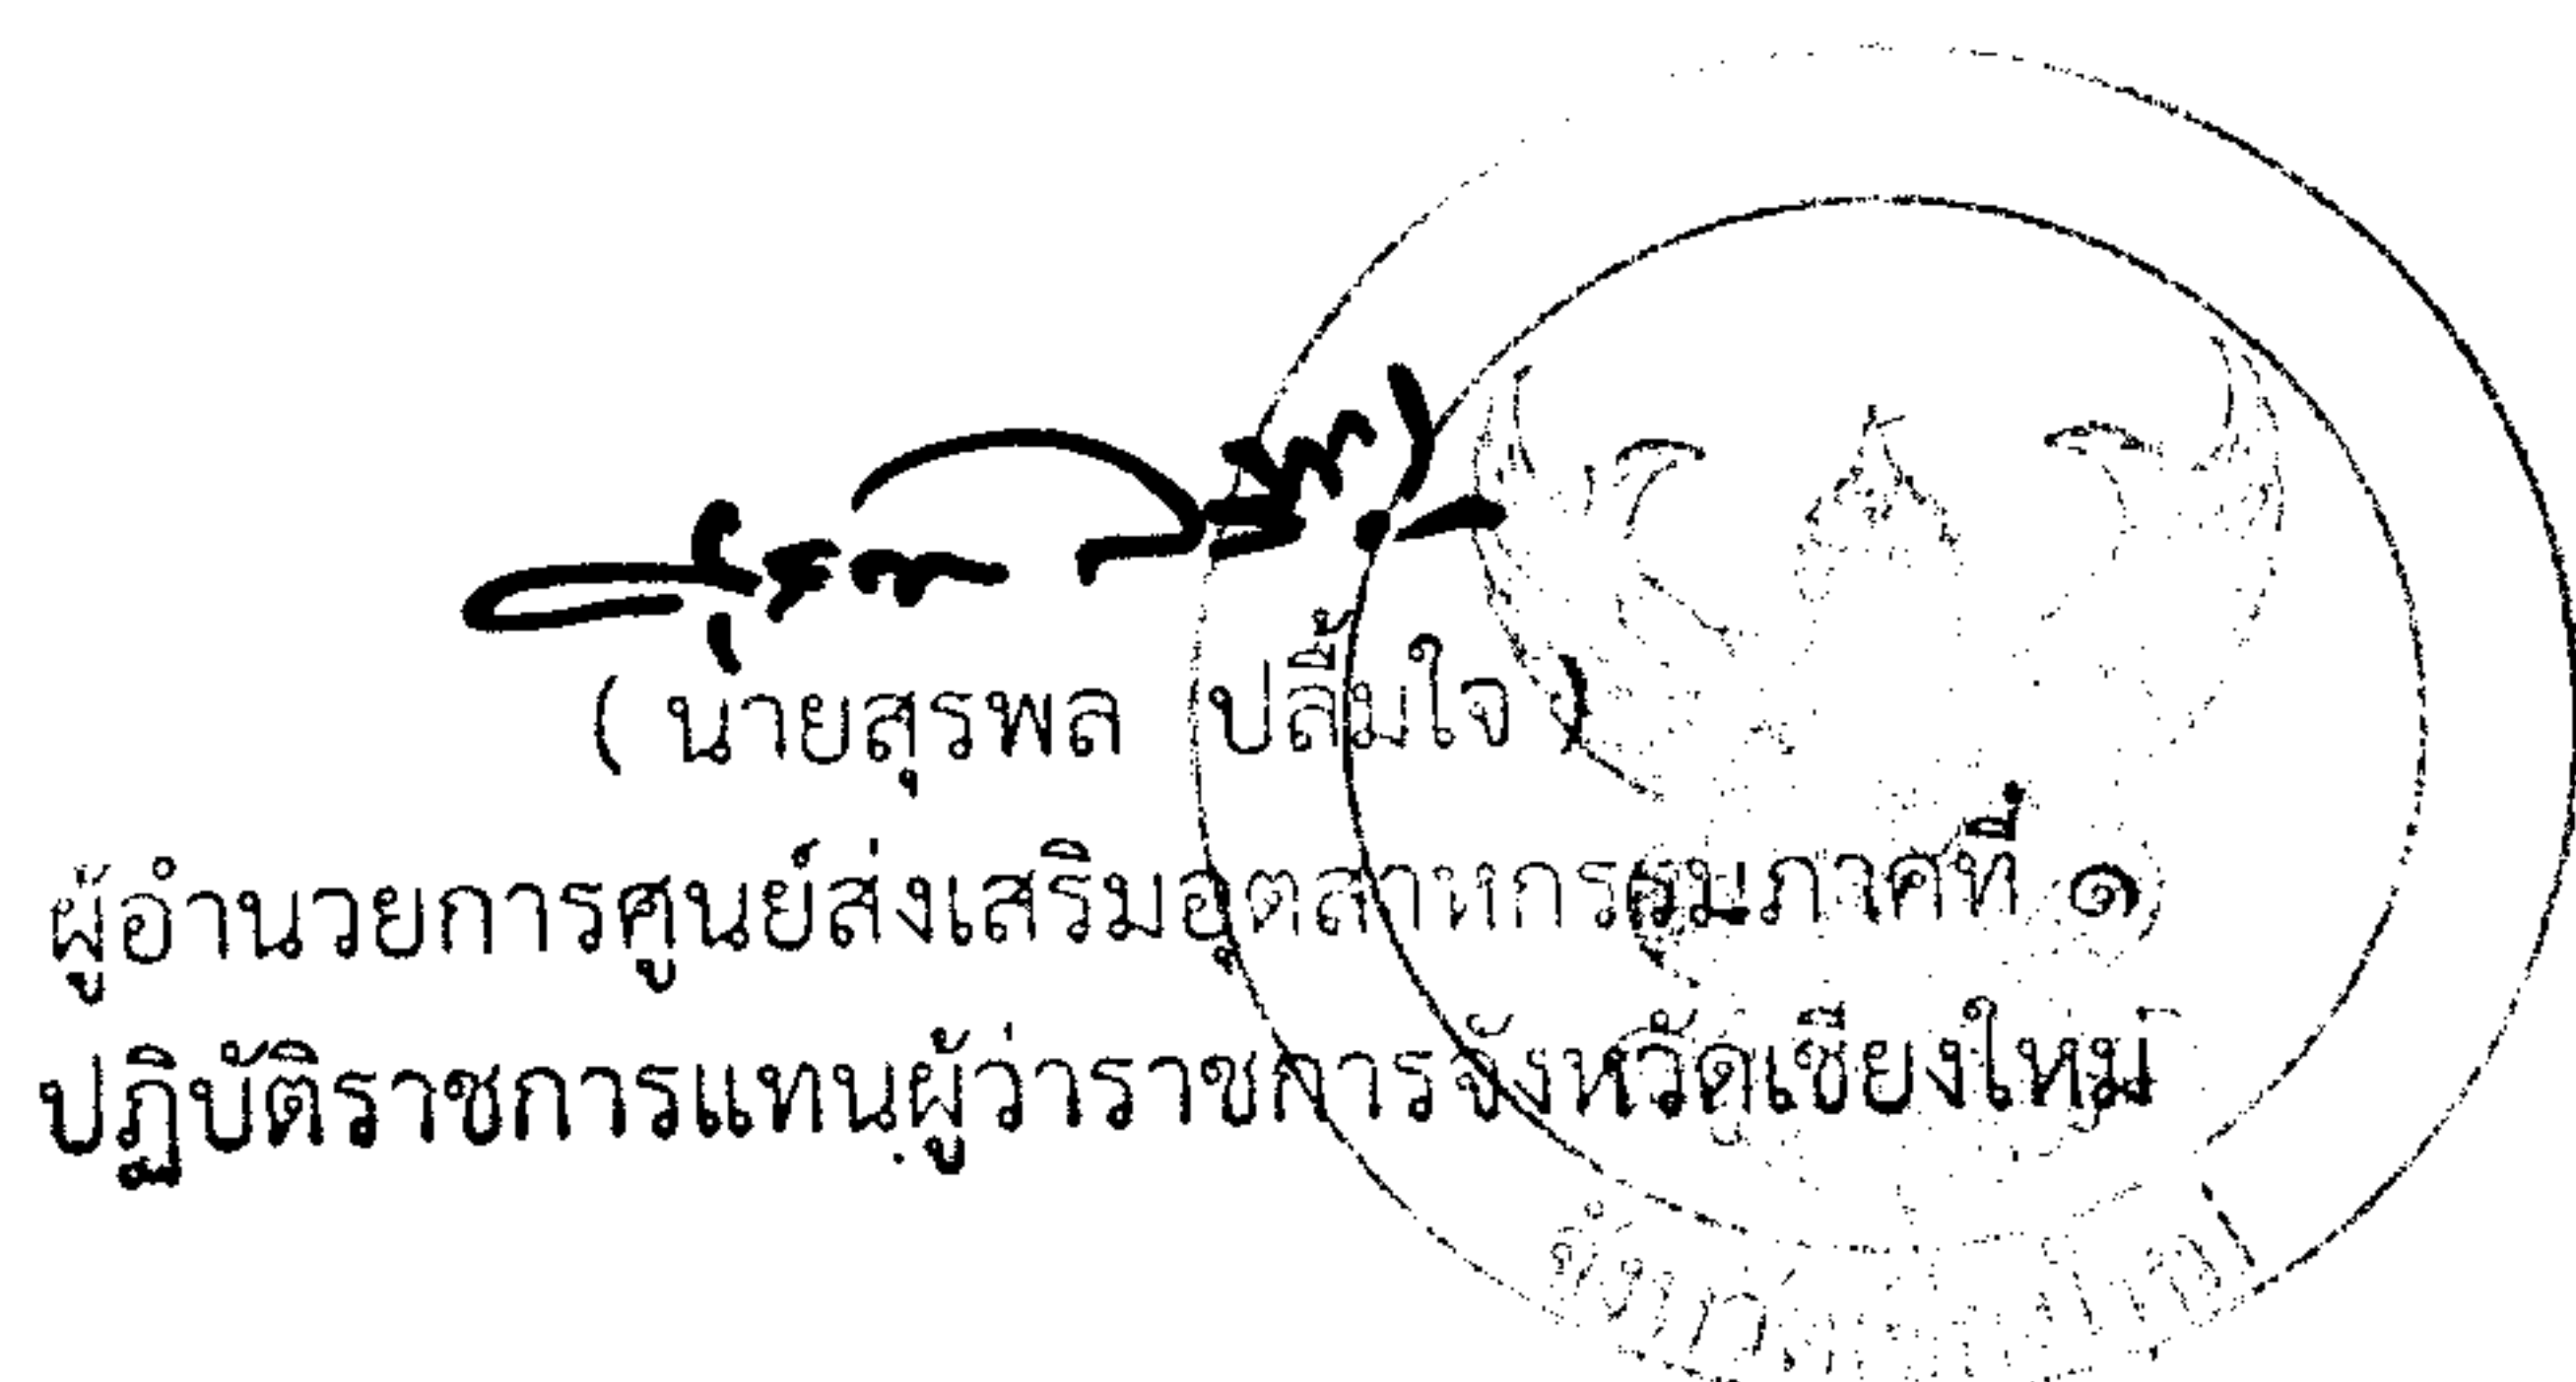 ( นายสุรพล ปลื้มใจ )
ผู้อำนวยการศูนย์ส่งเสริมอุตสาหกรรมภาคที่ ๑
ปฏิบัติราชการแทนผู้ว่าราชการจังหวัดเชียงใหม่